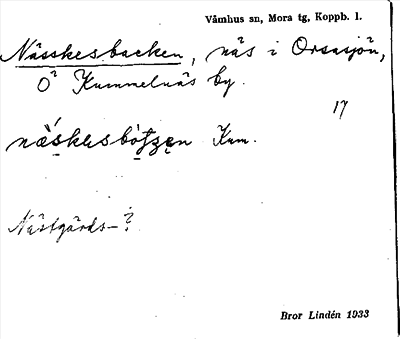 Våmhus sn, Mora tg, Koppb. l.
Nässkesbacken, näs i Orsasjön,
O Kummelnäs by.
17
Kum.
Nästgårds-?
Bror Lindén 1933